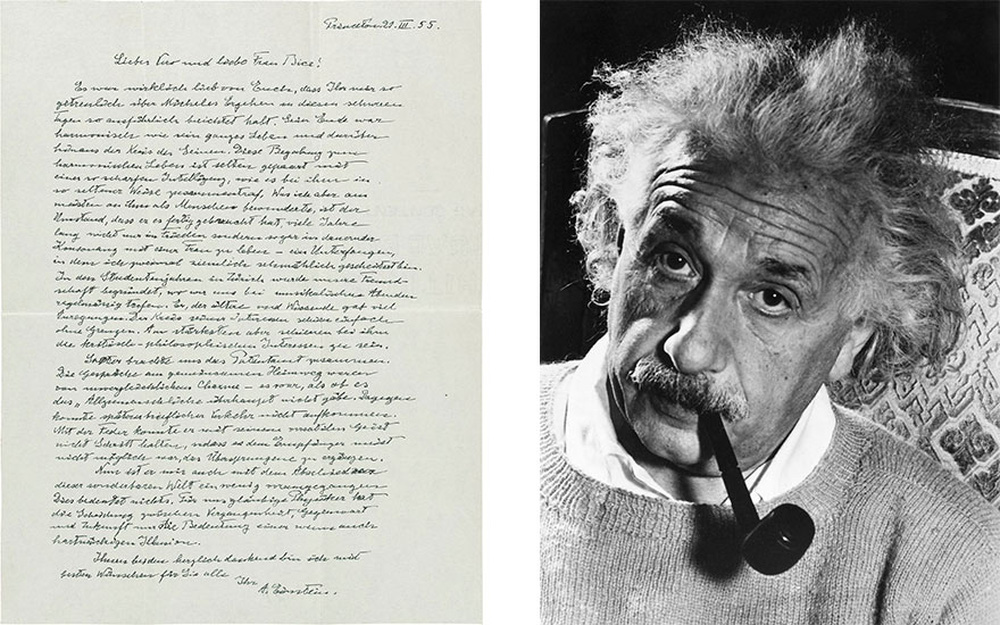 Princeton. 21. III. 55.
Lieber Vero und liebe Frau Bice!
Es war wirklich lieb von Euch, dass Ihr mir so
getreulich über Micheles Ergehen in diesen schweren
Tagen so ausführlich berichtet habt. Sein Ende war
harmonisch wie sein ganzes Leben und darüber
hinaus der Kreis der Seinen. Diese Begabung zum
harmonischen Leben ist selten gepaart mit
einer so scharfen Intelligenz, wie es bei ihm in
so seltener Weise zusammentraf. Was ich aber am
meisten an ihm als Menschen bewunderte, ist der
Umstand, dass er es fertig gebracht hat, viele Jahre
lang nicht nur im Frieden sondern sogar in dauernder
Konsonanz mit einer Frau zu leben – ein Unterfangen,
in dem ich zweimal ziemlich schmählich gescheitert bin.
In den Studentenjahren in Zürich wurde unsere Freund-
schaft begründet, wo wir uns bei musikalischen Abenden
regelmässig trafen. Er, der ältere und Wissende gab viel
Anregungen. Der Kreis seiner Interessen schien einfach
ohne Grenzen. Am stärksten aber schienen bei ihm
die kritisch-philosophischen Interessen zu sein.
Später brachte uns das Patentamt zusammen.
Die Gespräche am gemeinsamen Heimweg waren
von unvergleichlichem Charme – es war, als ob es
das „Allzumenschliche überhaupt nicht gäbe. Dagegen
konnte späterer brieflicher Verkehr nicht aufkommen.
Mit der Feder konnte er mit seinem Geist
nicht Schritt halten, sodass es dem Empfänger meist
nicht möglich war, das Übersprungene zu ergänzen.
Nun ist er mir auch mit dem Abschied von
dieser sonderbaren Welt ein wenig vorausgegangen.
Dies bedeutet nichts. Für uns gläubige Physiker hat
die Scheidung zwischen Vergangenheit, Gegenwart
und Zukunft nur die Bedeutung einer wenn auch
hartnäckigen Illusion.
Ihnen beiden herzlich dankend bin ich mit
besten Wünschen für Sie alle
Ihr
A. Einstein.